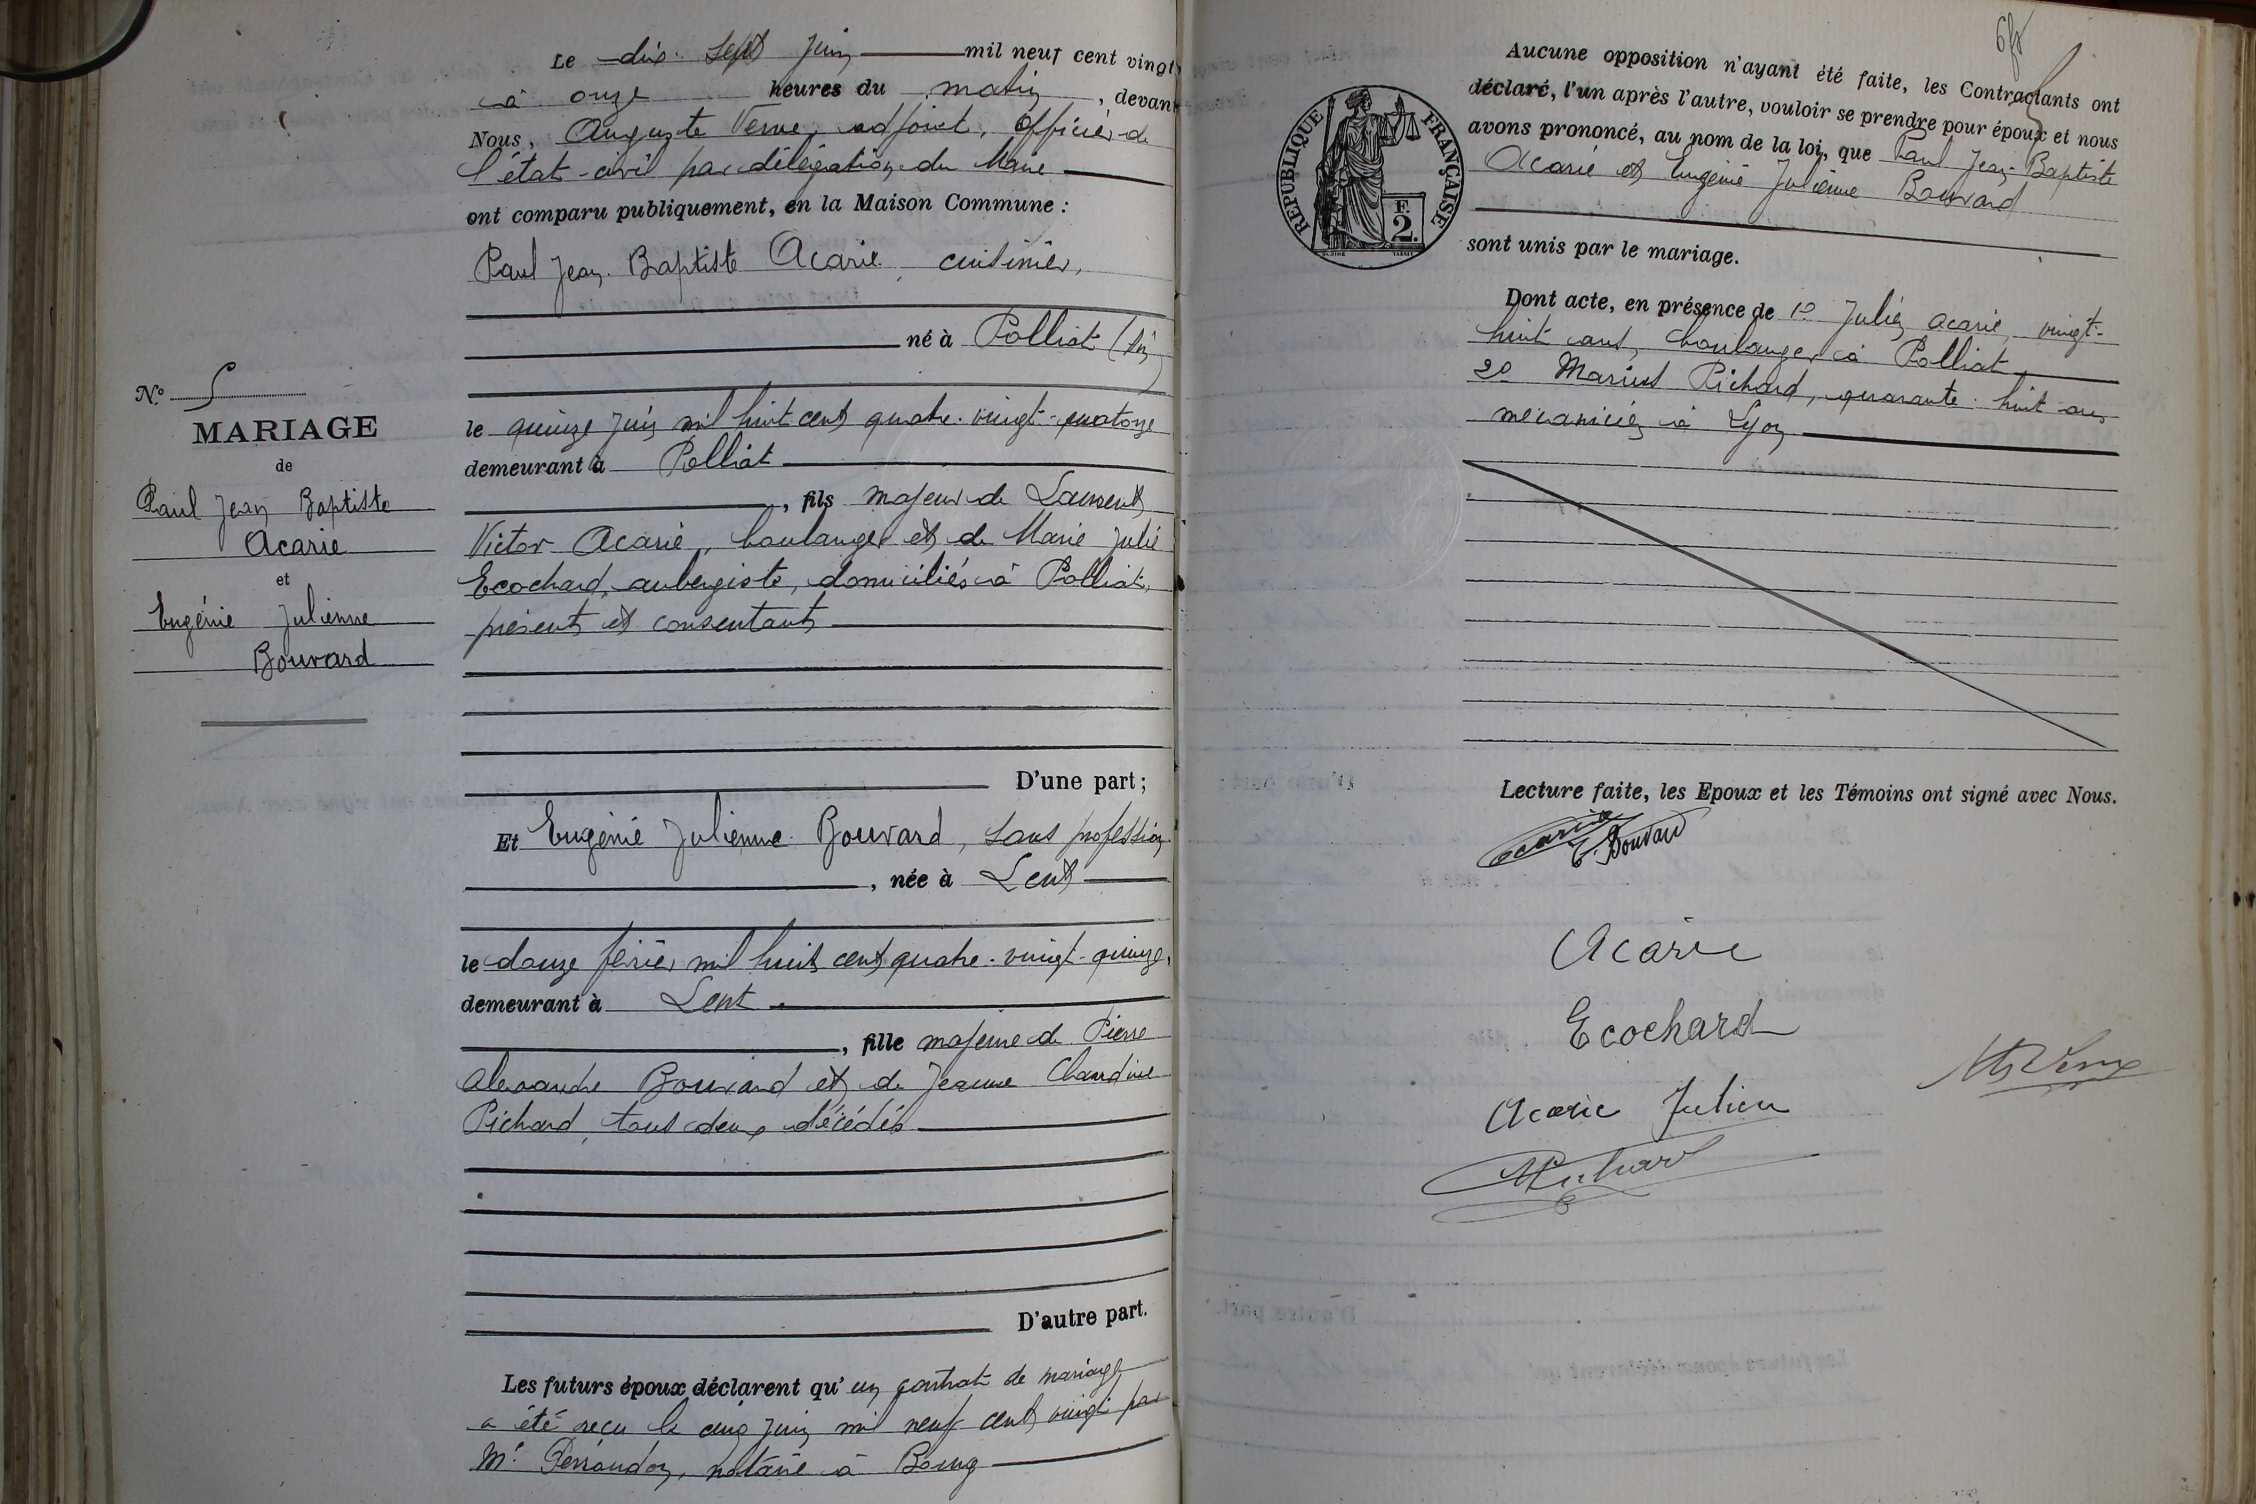 Le dix-sept Juin mil neuf cent vingt
à onze heures du matin, devant
Nous, Auguste Verne, adjoint, officier de
l'état-civil par délégation du Maire
ont comparu publiquement, en la Maison Commune :
Paul Jean-Baptiste Acarie, cuisinier,
né à Polliat (Ain)
le quinze juin mil huit cent quatre-vingt-quatorze
demeurant à Polliat
, fils majeur de Laurent
Victor Acarie, boulanger et de Marie Julie
Ecochard, aubergiste, domiciliés à Polliat,
présents et consentants
N.º 5
MARIAGE
de
Paul Jean Baptiste
Acarie
et
Eugénie Julienne
Bouvard
D'une part ;
Et Eugénie Julienne Bouvard, sans profession
, née à Lent
le douze février mil huit cent quatre-vingt-quinze,
demeurant à Lent
, fille majeure de Pierre
Alexandre Bouvard et de Jeanne Claudine
Pichard, tous deux décédés
D'autre part.
Les futurs époux déclarent qu'un contrat de mariage
a été reçu le cinq juin mil neuf cent vingt par
Me Perraudon, notaire à Bourg
6fo
RÉPUBLIQUE FRANÇAISE
F.
2.
Aucune opposition n'ayant été faite, les Contractants ont
déclaré, l'un après l'autre, vouloir se prendre pour époux et nous
avons prononcé, au nom de la loi, que Paul Jean-Baptiste
Acarie et Eugénie Julienne Bouvard
sont unis par le mariage.
Dont acte, en présence de 1º Julien Acarie, vingt-
huit ans, boulanger à Polliat,
2º Marius Pichard, quarante-huit ans,
mécanicien à Lyon
Lecture faite, les Epoux et les Témoins ont signé avec Nous.
Acarie
E. Bouvard
Acarie
Ecochard
Acarie Julien
MPichard